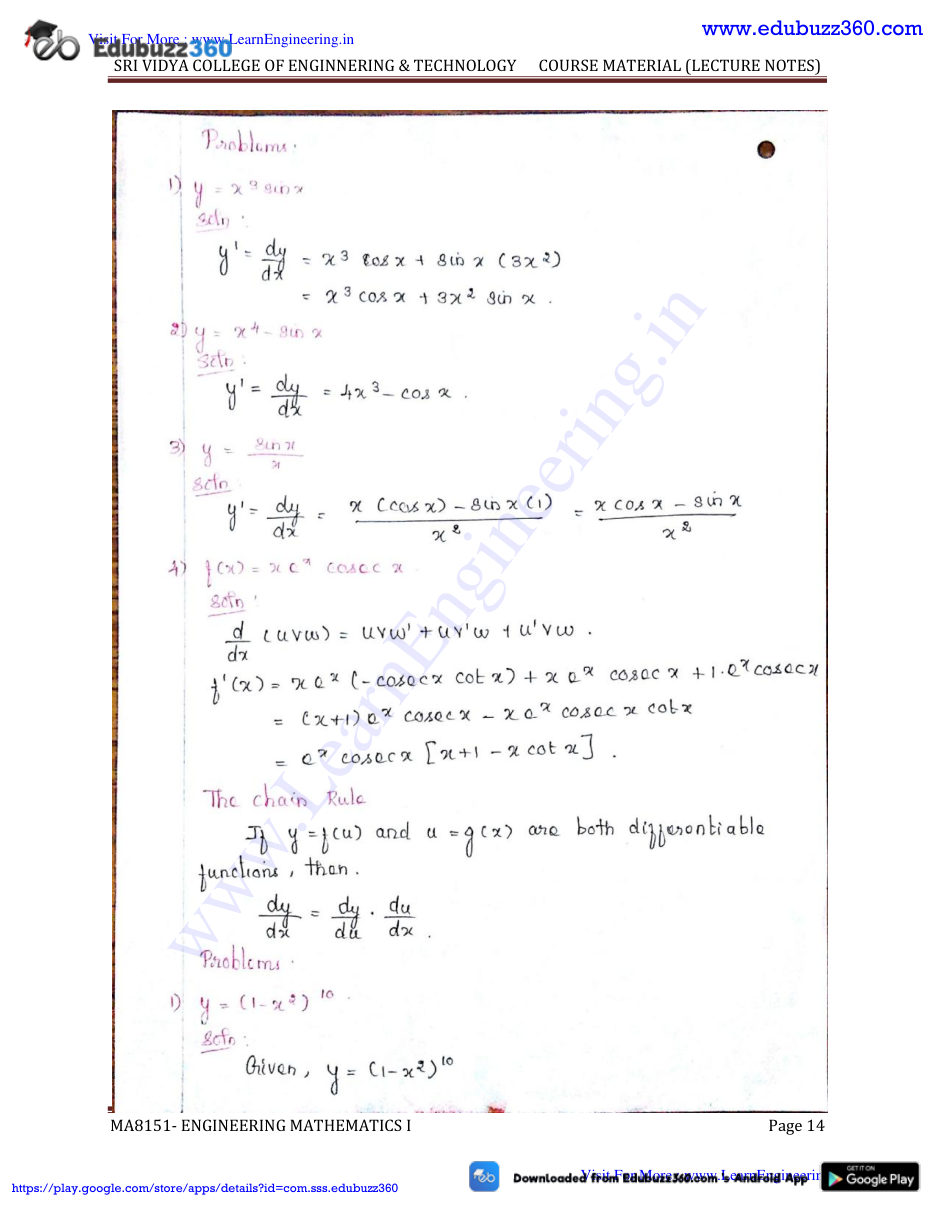 www.edubuzz360.com
Visit For More : www.LearnEngineering.in
Edubuzz360
SRI VIDYA COLLEGE OF ENGINNERING & TECHNOLOGY COURSE MATERIAL (LECTURE NOTES)
Problems.
1) y = x³ sin x
Soln :
y' = dy/dx = x³ cos x + sin x (3x²)
= x³ cos x + 3x² sin x .
2) y = x⁴ - sin x
Soln :
y' = dy/dx = 4x³ - cos x .
3) y = sin x / x
Soln :
y' = dy/dx = x (cos x) - sin x (1) / x² = x cos x - sin x / x²
4) f(x) = x eˣ cosec x .
Soln :
d/dx (uvw) = uvw' + uv'w + u'vw .
f'(x) = x eˣ (-cosec x cot x) + x eˣ cosec x + 1. eˣ cosec x
= (x+1) eˣ cosec x - x eˣ cosec x cot x
= eˣ cosec x [x+1 - x cot x] .
The chain Rule
If y = f(u) and u = g(x) are both differentiable
functions, then.
dy/dx = dy/du . du/dx .
Problems .
1) y = (1-x²)¹⁰ .
Soln :
Given, y = (1-x²)¹⁰
www.LearnEngineering.in
MA8151- ENGINEERING MATHEMATICS I Page 14
Downloaded from EduBuzz360.com's Android App
Visit For More : www.LearnEngineering.in
GET IT ON
Google Play
https://play.google.com/store/apps/details?id=com.sss.edubuzz360